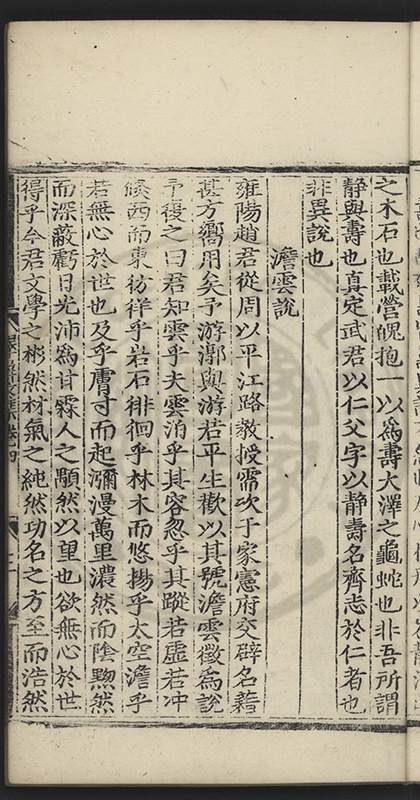 之木石也載營魄抱一以為壽大澤之龜蛇也非吾所謂
靜與壽也真定武君以仁父字以靜壽名齊志於仁者也
非異說也
澹雲說
雍陽趙君從周以平江路教授需次于家憲府交辟名藉
甚方嚮用矣予游鄭與游若平生歡以其號澹雲徵為說
予復之曰君知雲乎夫雲泊乎其容忽乎其蹤若虛若冲
倐西而東彷徉乎岩石徘徊乎林木而悠揚乎太空澹乎
若無心於世也及乎膚寸而起瀰漫萬里濃然而陰黝然
而深蔽虧日光沛為甘霖人之顒然以望也欲無心於世
得乎今君文學之彬然材氣之純然功名之方至而浩然